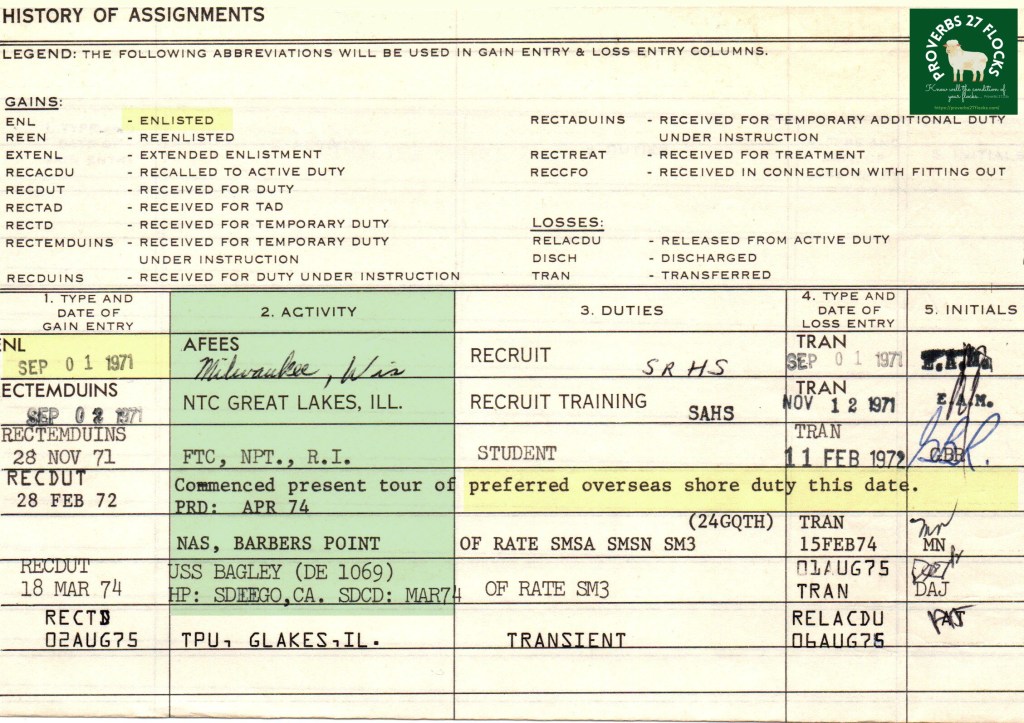 HISTORY OF ASSIGNMENTS
PROVERBS 27 FLOCKS
Know well the condition of
your flocks
https://proverbs27flocks.com/
LEGEND: THE FOLLOWING ABBREVIATIONS WILL BE USED IN GAIN ENTRY & LOSS ENTRY COLUMNS.
GAINS:
ENL - ENLISTED
REEN - REENLISTED
EXTENL - EXTENDED ENLISTMENT
RECACDU - RECALLED TO ACTIVE DUTY
RECDUT - RECEIVED FOR DUTY
RECTAD - RECEIVED FOR TAD
RECTD - RECEIVED FOR TEMPORARY DUTY
RECTEMDUINS - RECEIVED FOR TEMPORARY DUTY
UNDER INSTRUCTION
RECDUINS - RECEIVED FOR DUTY UNDER INSTRUCTION
RECTADUINS - RECEIVED FOR TEMPORARY ADDITIONAL DUTY
UNDER INSTRUCTION
RECTREAT - RECEIVED FOR TREATMENT
RECCFO - RECEIVED IN CONNECTION WITH FITTING OUT
LOSSES:
RELACDU - RELEASED FROM ACTIVE DUTY
DISCH - DISCHARGED
TRAN - TRANSFERRED
1. TYPE AND
DATE OF
GAIN ENTRY
2. ACTIVITY
3. DUTIES
4. TYPE AND
DATE OF
LOSS ENTRY
5. INITIALS
NL
SEP 01 1971
AFEES
Milwaukee, Wis
RECRUIT SRHS
TRAN
SEP 01 1971
ECTEMDUINS
SEP 02 1971
NTC GREAT LAKES, ILL.
RECRUIT TRAINING SAHS
TRAN
NOV 12 1971
E.A.M.
RECTEMDUINS
28 NOV 71
FTC, NPT., R.I.
STUDENT
TRAN
11 FEB 1972
GBR
RECDUT
28 FEB 72
Commenced present tour of preferred overseas shore duty this date.
PRD: APR 74
NAS, BARBERS POINT
(24GQTH)
OF RATE SMSA SMSN SM3
TRAN
15FEB74
MN
RECDUT
18 MAR 74
USS BAGLEY (DE 1069)
HP: SDIEGO,CA. SDCD: MAR74
OF RATE SM3
01AUG75
TRAN
DAJ
RECTD
02AUG75
TPU, GLAKES,IL.
TRANSIENT
RELACDU
06AUG75